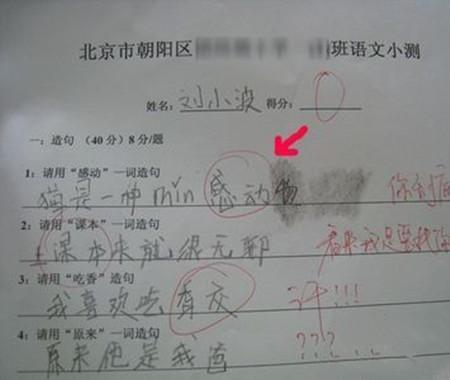 北京市朝阳区 班语文小测
姓名: 刘小波 得分: 0
一: 造句 (40分) 8分/题
1: 请用“感动”一词造句
猫是一种min感动物
2: 请用“课本”一词造句
课本来就很无聊
3: 请用“吃香”造句
我喜欢吃香交
汗!!!
4: 请用“原来”一词造句
原来他是我爸
???...